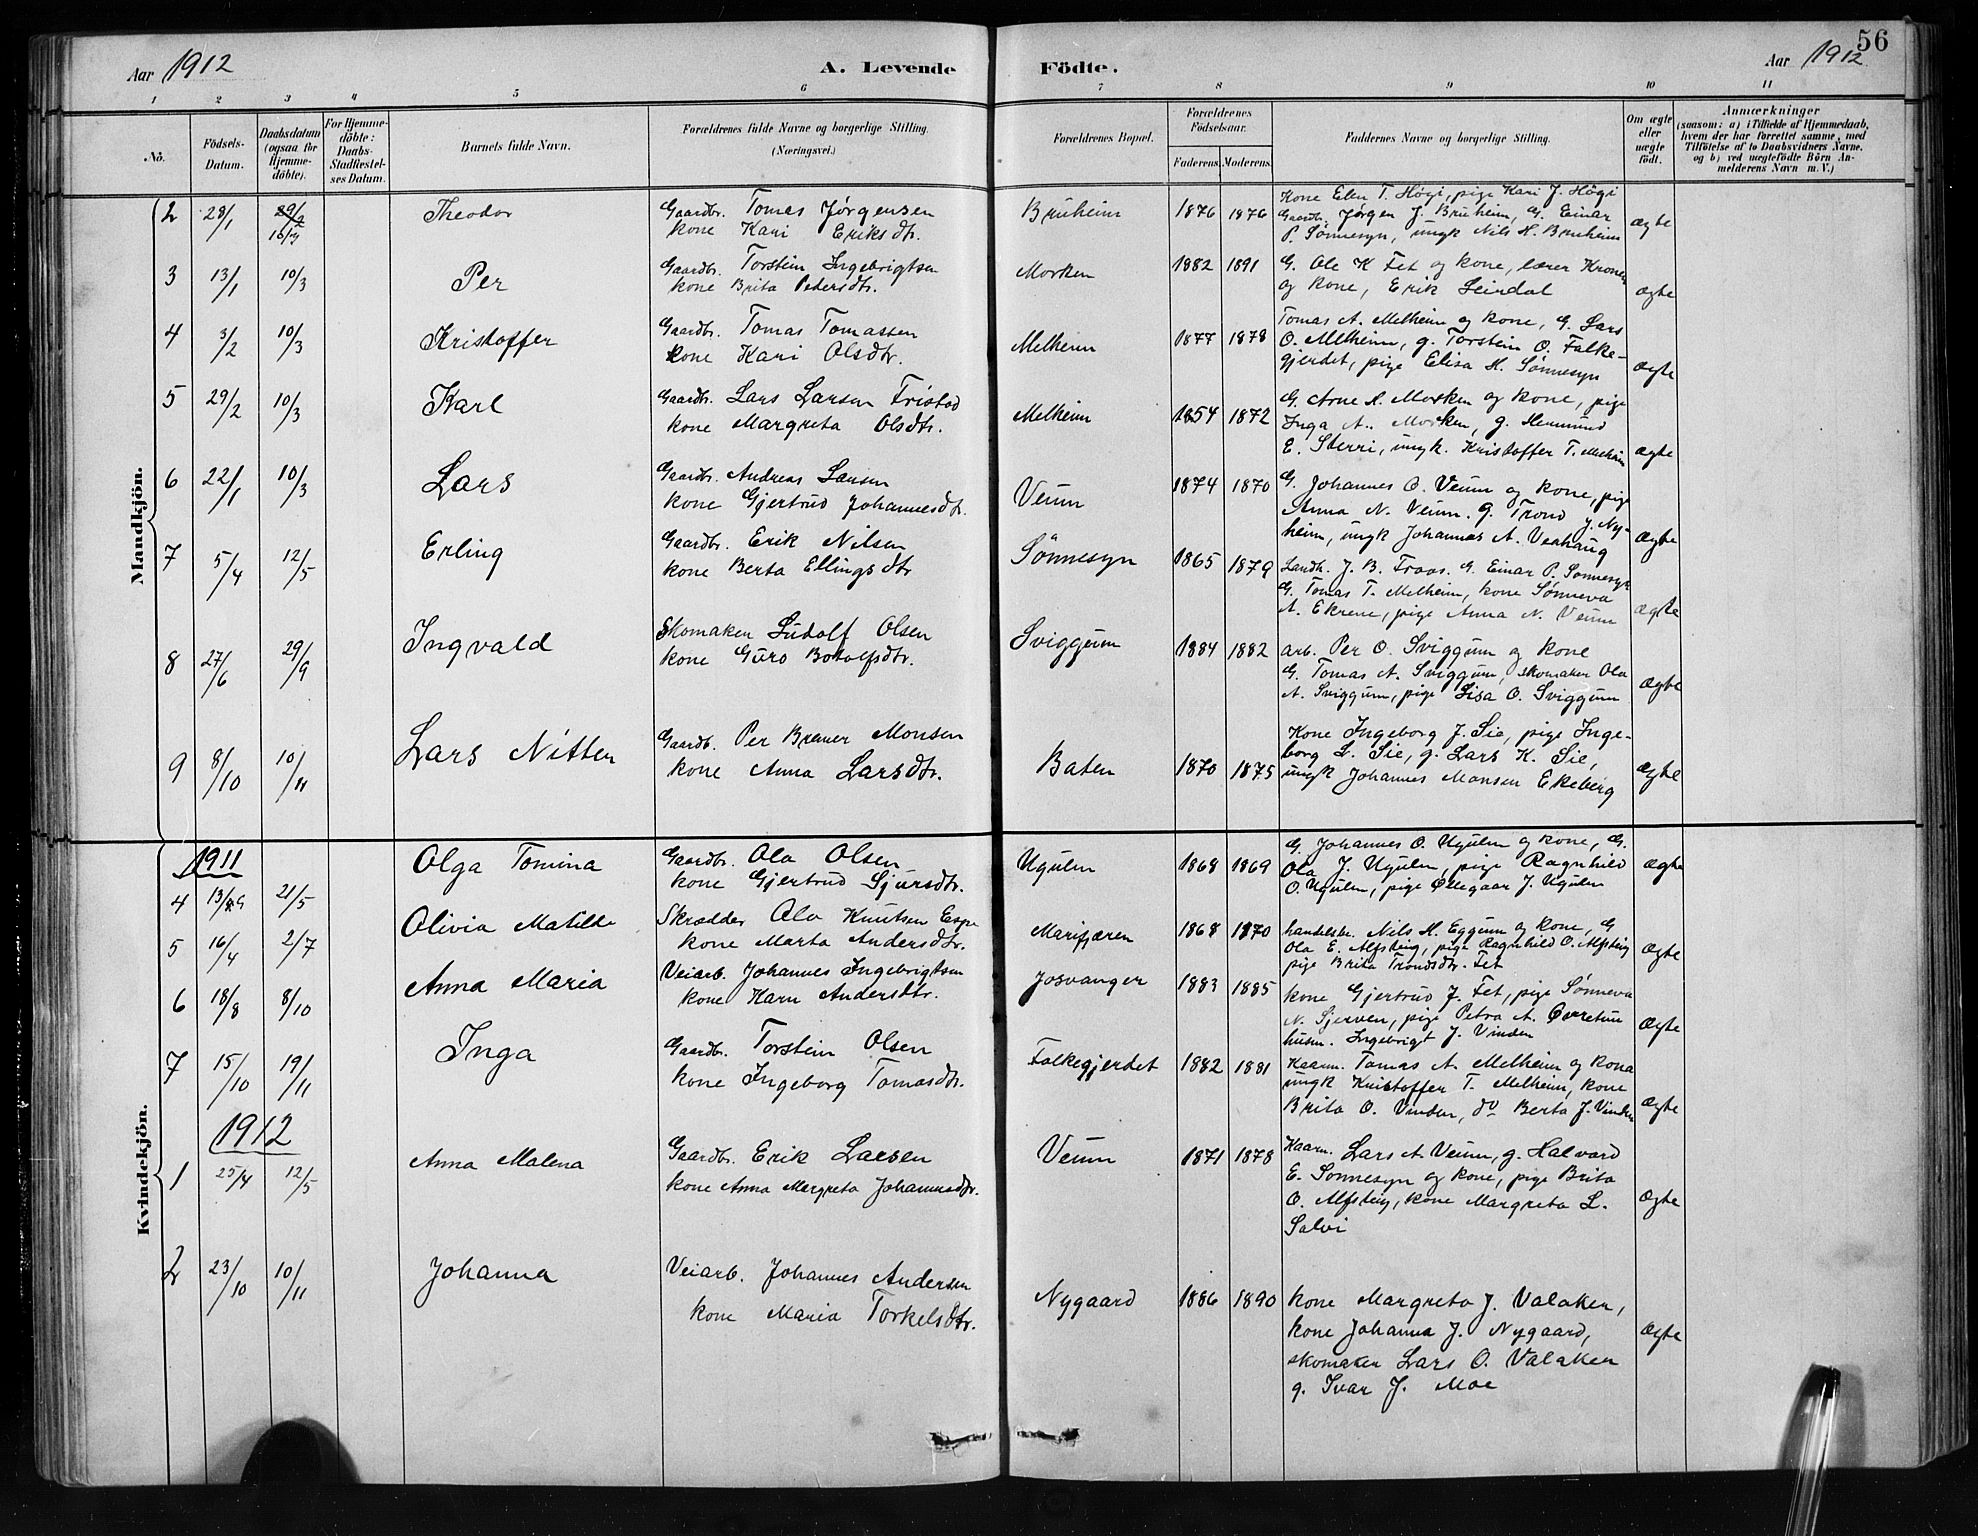 Aar 1912
A. Levende
Födte.
Aar 1912
56
1 2 3 4 5 6 7 8 9 10 11
Nö.
Födsels-Datum.
Daabsdatum (ogsaa for Hjemmedöbte).
For Hjemmedöbte: Daabs-Stadfæstelses Datum.
Barnets fulde Navn.
Forældrenes fulde Navne og borgerlige Stilling. (Næringsvei.)
Forældrenes Bopæl.
Forældrenes Födselsaar.
Faderens. Moderens.
Faddernes Navne og borgerlige Stilling.
Om ægte eller uægte födt.
Anmærkninger
(saasom: a) i Tilfælde af Hjemmedaab, hvem der har forrettet samme, med Tilföielse af to Daabsvidners Navne, og b) ved uægtefödte Börn Anmelderens Navn m. V.)
Mandkjön.
2 28/1 29/2 16/3 Theodor Gaardbr. Tomas Jørgensen
kone Kari Eriksdtr. Bruheim 1876 1876
Kone Elen T. Høgi, pige Kari J. Høgi
Gaardb. Jørgen J. Bruheim, G. Einar
P. Sønnesyn, ungk Nils H. Bruheim ægte
3 13/1 10/3 Per Gaardbr. Torstein Ingebrigtsen
kone Brita Pedersdtr. Morken 1882 1891
G. Ole K Fet og kone, lærer Kronen
og kone, Erik Leirdal ægte
4 3/2 10/3 Kristoffer Gaardbr. Tomas Tomassen
kone Kari Olsdtr. Melheim 1877 1878
Tomas A. Melheim og kone, G. Lars
O. Melheim, g. Torstein O. Falke-
gjerdet, pige Elisa H. Sønnesyn ægte
5 29/2 10/3 Karl Gaardbr. Lars Larsen Fristad
kone Margreta Olsdtr. Melheim 1854 1872
G. Arne A. Morken og kone, pige
Inga A. Morken, g. Hermund
E. Sterri, ungk. Kristoffer T. Melheim ægte
6 22/1 10/3 Lars Gaardbr. Andreas Larsen
kone Gjertrud Johannesdtr. Veum 1874 1870
G. Johannes O. Veum og kone, pige
Anna N. Veum. g. Trond J. Ny-
heim, ungk Johannes A. Verhaug ægte
7 5/4 12/5 Erling Gaardbr. Erik Nilsen
kone Berta Ellingsdtr Sønnesyn 1865 1879
Landh. J. B. Traas. G. Einar P. Sønnesyn
G. Tomas T. Melheim, kone Sønneva
A. Ekrene, pige Anna N. Veum ægte
8 27/6 29/9 Ingvald Skomaker Ludolf Olsen
kone Guro Botolfsdtr. Sviggum 1884 1882
arb. Per O. Sviggum og kone
G. Tomas A. Sviggum, skomaker Ola
A. Sviggum, pige Lisa O. Sviggum ægte
9 8/10 10/11 Lars Nitter Gaardb. Per Bremer Monsen
kone Anna Larsdtr. Baten 1870 1875
Kone Ingeborg J. Sie, pige Inge-
borg L. Sie, g. Lars K. Sie,
ungk Johannes Monsen Ekeberg ægte
Kvindekjön.
1911
4 21/5 Olga Tomina Gaardbr. Ola Olsen
kone Gjertrud Sjursdtr. Ugulen 1868 1869
G. Johannes O. Ugulen og kone, G.
Ola J. Ugulen, pige Ragnhild
O. Ugulen, pige Øllegaar J. Ugulen ægte
5 16/4 2/7 Olivia Matilde Skrædder Ola Knutsen Espe
kone Marta Andersdtr. Marifjæren 1868 1870
handelsbr. Nils H. Eggum og kone, G
Ola E. Alfsteig, pige Ragnhild O. Alfsteig
pige Brita Trondsdtr. Fet ægte
6 18/8 8/10 Anna Maria Veiarb. Johannes Ingebrigtsen
kone Karn Andersdtr. Josvanger 1883 1885
kone Gjertrud J. Fet, pige Sønneva
N. Sjerven, pige Petra A. Øvretun
husm. Ingebrigt J. Vinden ægte
7 15/10 19/11 Inga Gaardbr. Torstein Olsen
kone Ingeborg Tomasdtr. Falkegjerdet 1882 1881
Kaarm. Tomas A. Melheim og kona
ungk Kristoffer T. Melheim, kone
Brita O. Vinden, do Berta J. Vinden ægte
1912
1 25/4 12/5 Anna Malena Gaardbr. Erik Larsen
kone Anna Margreta Johannesdtr. Veum 1871 1878
Kaarm. Lars A. Veum, g. Halvard
E. Sønnesyn og kone, pige Brita
O. Alfsteig, kone Margreta L.
Salvi ægte
2 23/10 10/11 Johanna Veiarb. Johannes Andersen
kone Maria Torkelsdtr. Nygaard 1886 1890
kone Margreta J. Valaker,
kone Johanna J. Nygaard,
skomaker Lars O. Valaker
g. Ivar J. Moe ægte